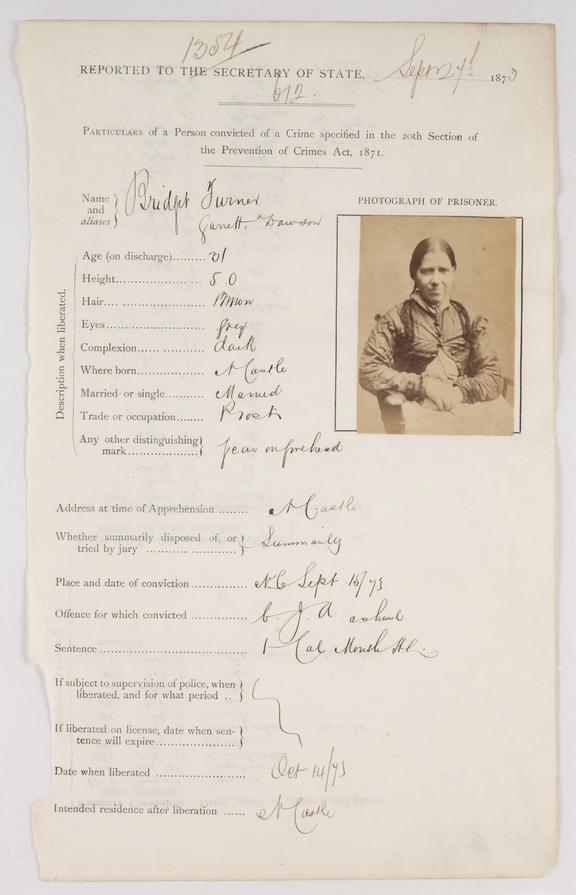 1354
REPORTED TO THE SECRETARY OF STATE, Sept 27th 1873
612.
PARTICULARS of a Person convicted of a Crime specified in the 20th Section of
the Prevention of Crimes Act, 1871.
Name and aliases } Bridget Turner
Garrett. Dawson
PHOTOGRAPH OF PRISONER.
Description when liberated.
Age (on discharge)......... 31
Height........................ 5.0
Hair.... ..................... Brown
Eyes........................... grey
Complexion...... ............ dark
Where born.................. N Castle
Married or single........... Married
Trade or occupation........ Prost
Any other distinguishing mark ..................... } scar on forehead
Address at time of Apprehension ........ N Castle.
Whether summarily disposed of, or tried by jury ........................ } Summarily
Place and date of conviction ............... N C Sept 15/73
Offence for which convicted ...............
Sentence ....................................... 1 Cal Month Hl.
If subject to supervision of police, when liberated, and for what period .. }
If liberated on license, date when sen-
tence will expire........................ }
Date when liberated ........................ Oct 14/73
Intended residence after liberation ...... N Castle